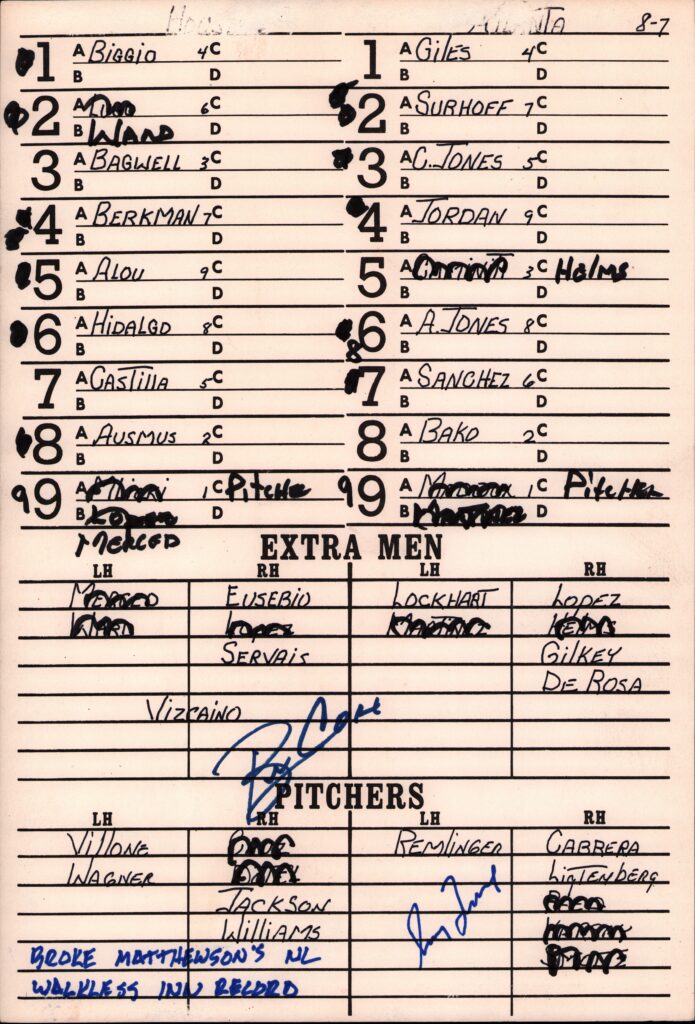 ATLANTA 8-7
1 A BIGGIO 4 C
B D
2 A 6 C
B WARD D
3 A BAGWELL 3 C
B D
4 A BERKMAN 7 C
B D
5 A ALOU 9 C
B D
6 A HIDALGO 8 C
B D
7 A CASTILLA 5 C
B D
8 A AUSMUS 2 C
B D
9 9 A 1 C PITCHE
B D
MERCED
1 A GILES 4 C
B D
2 A SURHOFF 7 C
B D
3 A C. JONES 5 C
B D
4 A JORDAN 9 C
B D
5 A 3 C HELMS
B D
6 A A. JONES 8 C
8 B D
7 A SANCHEZ 6 C
B D
8 A BAKO 2 C
B D
9 9 A 1 C PITCHER
B D
EXTRA MEN
LH RH LH RH
MERCED EUSEBIO LOCKHART LOPEZ
WARD LOPEZ MARTINEZ HELMS
SERVAIS GILKEY
DE ROSA
VIZCAINO
PITCHERS
LH RH LH RH
VILLONE REMLINGER CABRERA
WAGNER LIGTENBERG
JACKSON
WILLIAMS
BROKE MATTHEWSON'S NL
WALKLESS INN RECORD